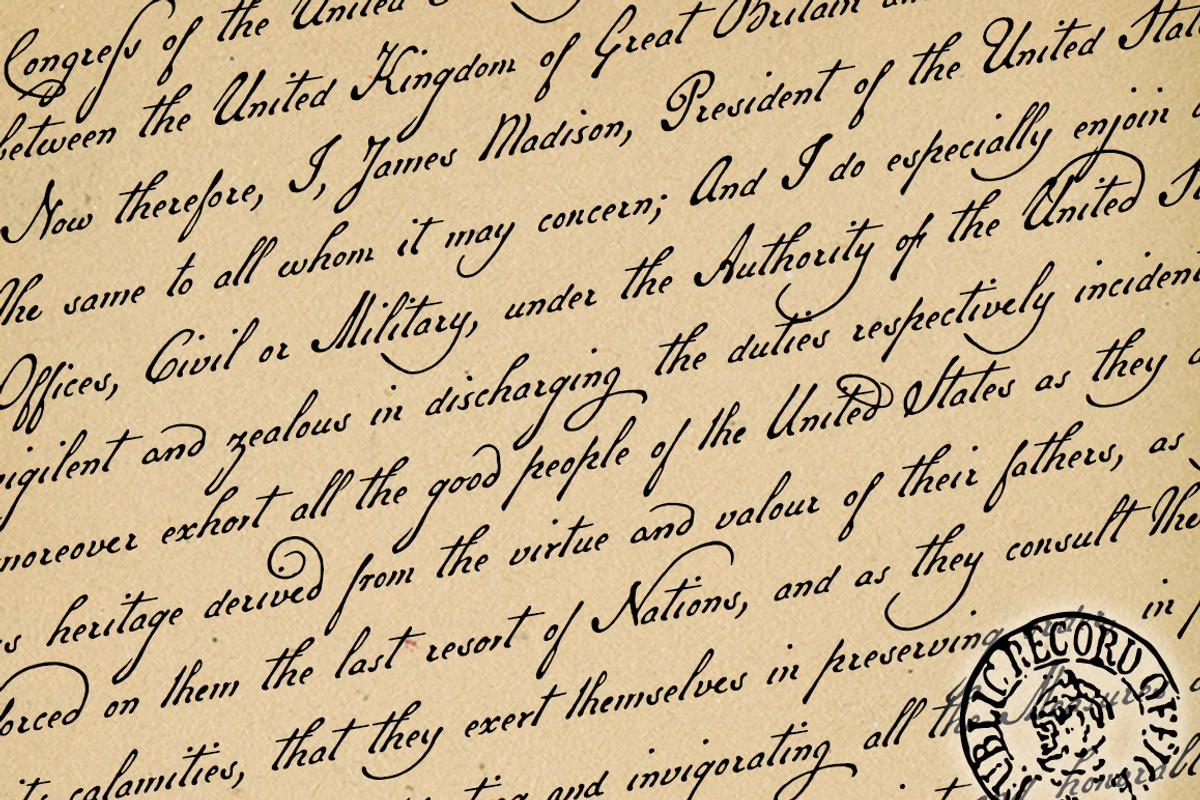 Congreſs of the United
between the United Kingdom of Great Britain
Now therefore, I, James Madison, President of the United
The same to all whom it may concern; And I do especially enjoin
Offices, Civil or Military, under the Authority of the United
vigilent and zealous in discharging the duties respectively incident
moreover exhort all the good people of the United States as they
heritage derived from the virtue and valour of their fathers, as
forced on them the last resort of Nations, and as they consult the
calamities, that they exert themselves in preserving in
and invigorating all the Measures
honorable
PUBLIC RECORD OFFICE